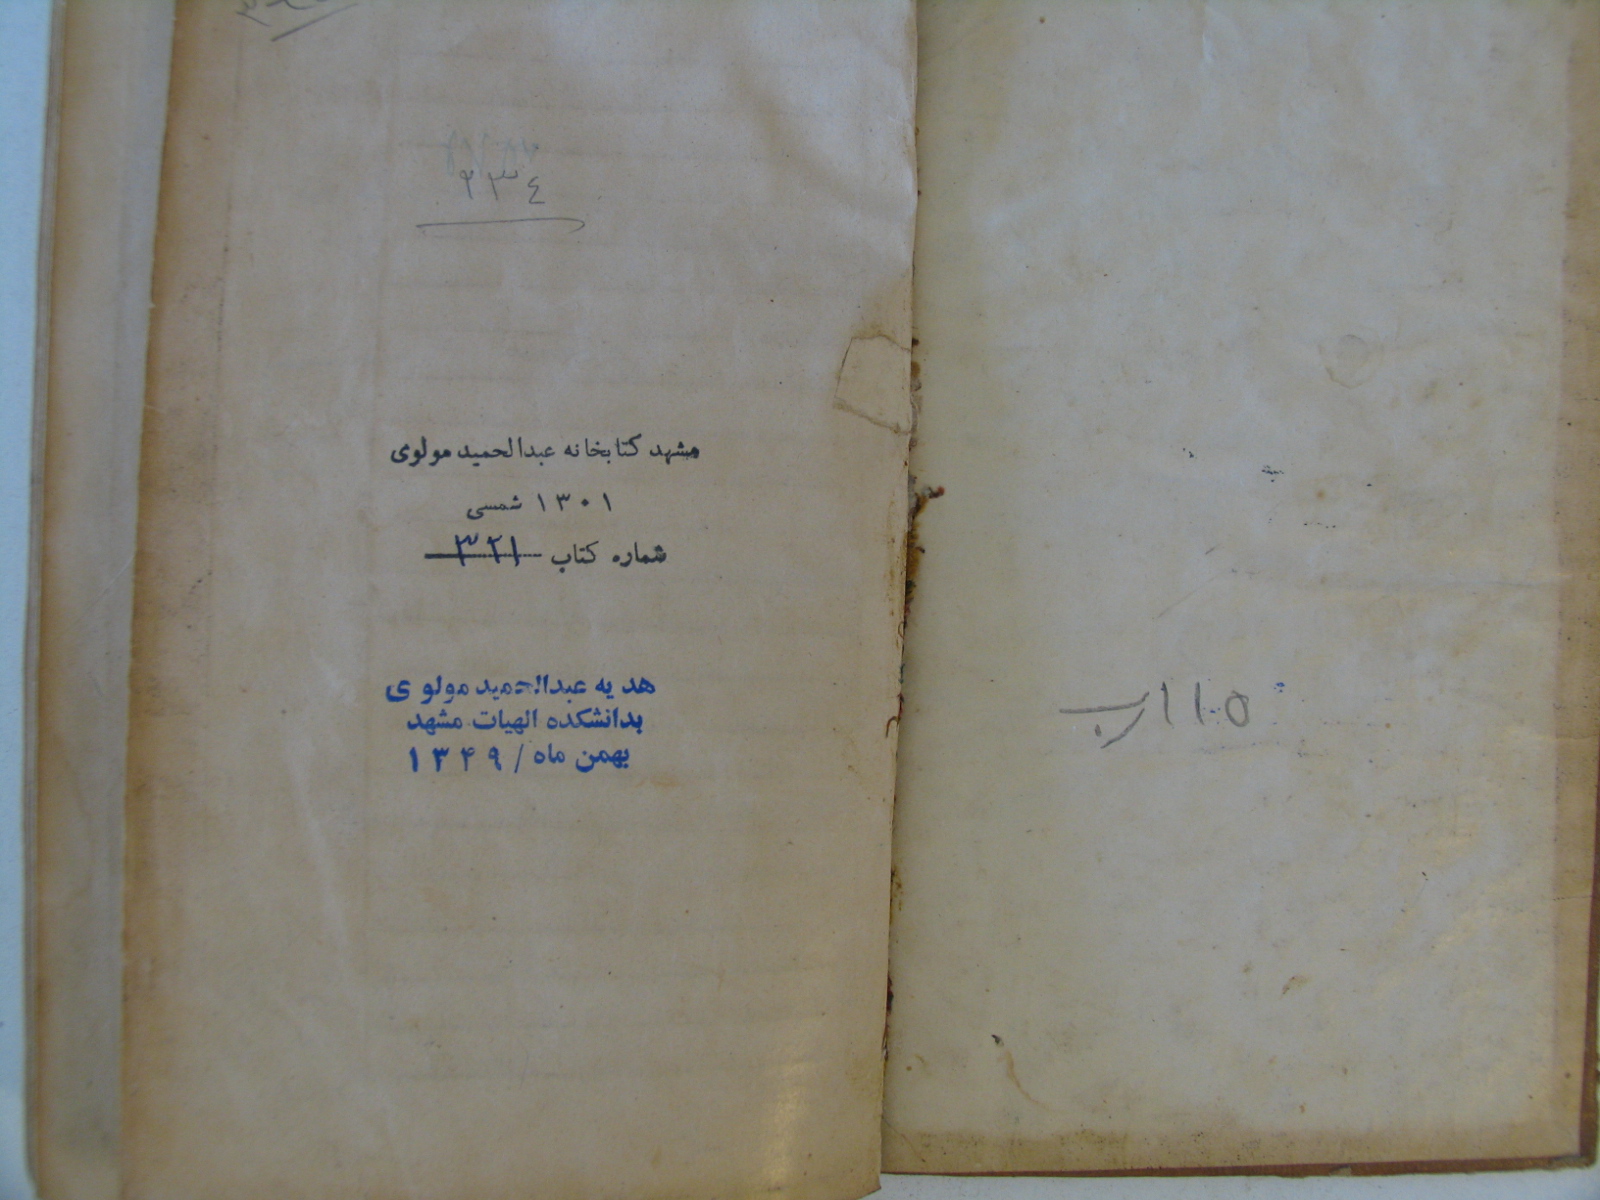 ۲۳٤
مشهد کتابخانه عبدالحمید مولوی
۱۳۰۱ شمسی
شماره کتاب ۳۲۱
هدیه عبدالحمید مولوی
بدانشکده الهیات مشهد
بهمن ماه / ۱۳۴۹
۱۱۵ب